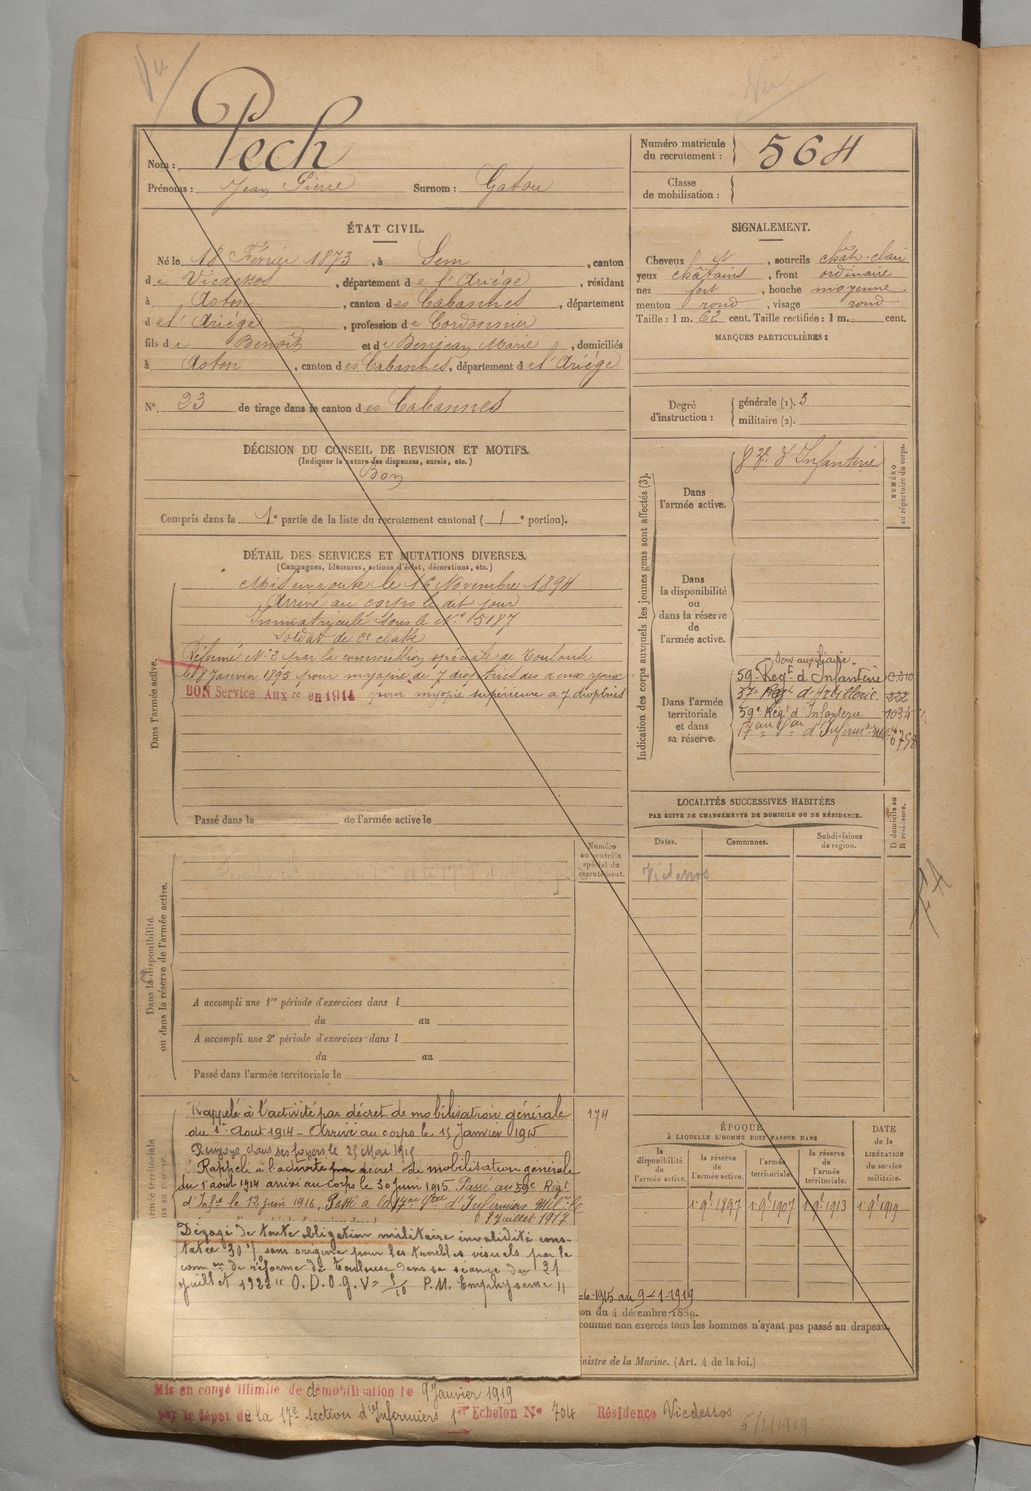 Vu
Nom : Pech
Prénoms : Jean Pierre Surnom : Gatou
Numéro matricule du recrutement : 564
Classe de mobilisation :
ÉTAT CIVIL.
Né le 18 Février 1873, à Sem, canton
de Vicdessos, département de l'Ariége, résidant
à Aston, canton des Cabannes, département
de l'Ariége, profession de Cordonnier
fils de Benoit et de Bonjean Marie, domiciliés
à Aston, canton des Cabannes, département de l'Ariége
N° 23 de tirage dans le canton des Cabannes
SIGNALEMENT.
Cheveux et, sourcils chât-clair
yeux châtains, front ordinaire
nez fort, bouche moyenne
menton rond, visage rond
Taille : 1 m. 62 cent. Taille rectifiée : 1 m. cent.
MARQUES PARTICULIÈRES :
Degré d'instruction : générale (1). 3
militaire (2).
DÉCISION DU CONSEIL DE REVISION ET MOTIFS.
(Indiquer la nature des dispenses, sursis, etc.)
Bon
Compris dans la 1e partie de la liste du recrutement cantonal ( 1e portion).
DÉTAIL DES SERVICES ET MUTATIONS DIVERSES.
(Campagnes, blessures, actions d'éclat, décorations, etc.)
Dans l'armée active.
Mis en route le 16 Novembre 1894
Arrivé au corps le dit jour
Immatriculé sous le N° 5187
Soldat de 2e classe
Réformé N° 2 par la commission spéciale de Toulouse
le 8 Janvier 1895 pour myopie de 7 dioptries des deux yeux
BON Service Auxre en 1914 pour myopie supérieure à 7 dioptries
Passé dans la de l'armée active le
Indication des corps auxquels les jeunes gens sont affectés (3).
NUMÉRO au répertoire du corps.
Dans l'armée active.
d'Infanterie
Dans la disponibilité ou dans la réserve de l'armée active.
Dans l'armée territoriale et dans sa réserve.
Serv auxiliaire.
59e Regt d'Infanterie
57e Regt d'Artillerie
59e Regt d'Infanterie
LOCALITÉS SUCCESSIVES HABITÉES
PAR SUITE DE CHANGEMENTS DE DOMICILE OU DE RÉSIDENCE.
D domicile ou R résidence.
Dates. Communes. Subdivisions de région.
Vicdessos
Numéro au contrôle spécial du recrutement.
Dans la disponibilité ou dans la réserve de l'armée active.
A accompli une 1re période d'exercices dans l
du au
A accompli une 2e période d'exercices dans l
du au
Passé dans l'armée territoriale le
174
Rappelé à l'activité par décret de mobilisation générale
du 1er Aout 1914 - Arrivé au corps le 15 Janvier 1915
Renvoyé dans ses foyers le 25 Mai 1915
Rappelé à l'activité par décret de mobilisation générale
du 1er août 1914 arrivé au corps le 30 juin 1915. Passé au 59e Regt
d'Infie le 12 juin 1916, Passé à la 17me Son d'Infirmiers Milres le
8 Juillet 1917
Dégagé de toute obligation militaire invalidité cons-
tatée sans origine pour les troubles visuels par la
comon de réforme de Toulouse dans sa séance du 21
juillet O.D.O.G.V= 1/10 P.M. Emphysème "
ÉPOQUE
À LAQUELLE L'HOMME DOIT PASSER DANS
DATE de la LIBÉRATION du service militaire.
la disponibilité de l'armée active. la réserve de l'armée active. l'armée territoriale. la réserve de l'armée territoriale.
1 9e 1897 1 9e 1907 1 9e 1913 1 9e 1919
6-1915 au 9-1-1919
on du 4 décembre 1889.
comme non exercés tous les hommes n'ayant pas passé au drapeau.
ministre de la Marine. (Art. 4 de la loi.)
Mis en congé illimité de démobilisation le 9 Janvier 1919
par le dépot de la 17e section d'Infirmiers 1er Echelon N° 704 Résidence Vicdessos